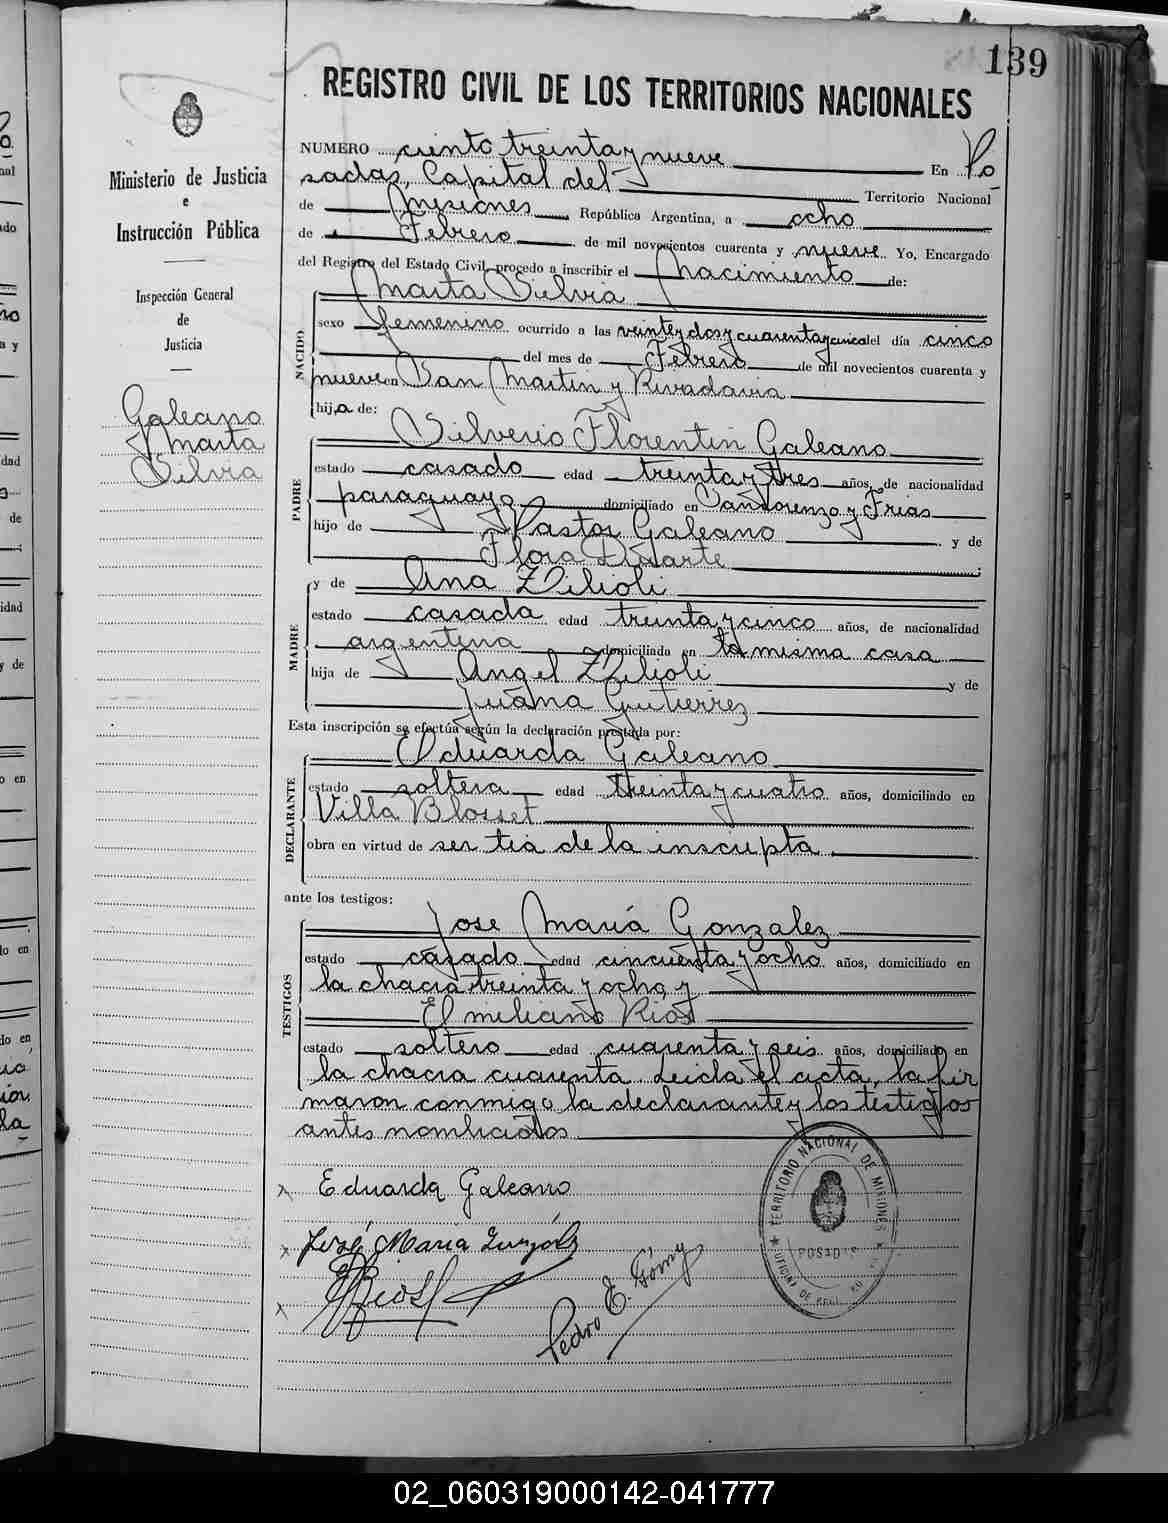 139
REGISTRO CIVIL DE LOS TERRITORIOS NACIONALES
Ministerio de Justicia
e
Instrucción Pública
Inspección General
de
Justicia
Galeano
Marta
Silvia
NUMERO ciento treinta y nueve En Po
sadas, Capital del Territorio Nacional
de Misiones República Argentina, a ocho
de Febrero de mil novecientos cuarenta y nueve Yo, Encargado
del Registro del Estado Civil, procedo a inscribir el nacimiento de:
Marta Silvia
NACIDO
sexo femenino ocurrido a las veinte y dos y cuarenta y cinco del día cinco
del mes de Febrero de mil novecientos cuarenta y
nueve en San Martin y Rivadavia
hija de:
Silverio Florentin Galeano
PADRE
estado casado edad treinta y tres años, de nacionalidad
paraguayo domiciliado en San Lorenzo y Frias
hijo de Pastor Galeano y de
Flora Duarte
y de Ana Zilioli
MADRE
estado casada edad treinta y cinco años, de nacionalidad
argentina domiciliada en la misma casa
hija de Angel Zilioli y de
Juana Gutierrez
Esta inscripción se efectúa según la declaración prestada por:
Eduarda Galeano
DECLARANTE
estado soltera edad treinta y cuatro años, domiciliado en
Villa Blosset
obra en virtud de ser tia de la inscripta.
ante los testigos:
Jose María Gonzalez
TESTIGOS
estado casado edad cincuenta y ocho años, domiciliado en
la chacra treinta y ocho, y
Emiliano Rios
estado soltero edad cuarenta y seis años, domiciliado en
la chacra cuarenta. Leida el acta, la fir
maron conmigo la declarante y los testigos
antes nombrados
x Eduarda Galeano
x José María González
x ERios
Pedro E. Gómy
TERRITORIO NACIONAL DE MISIONES
POSADAS
02_060319000142-041777